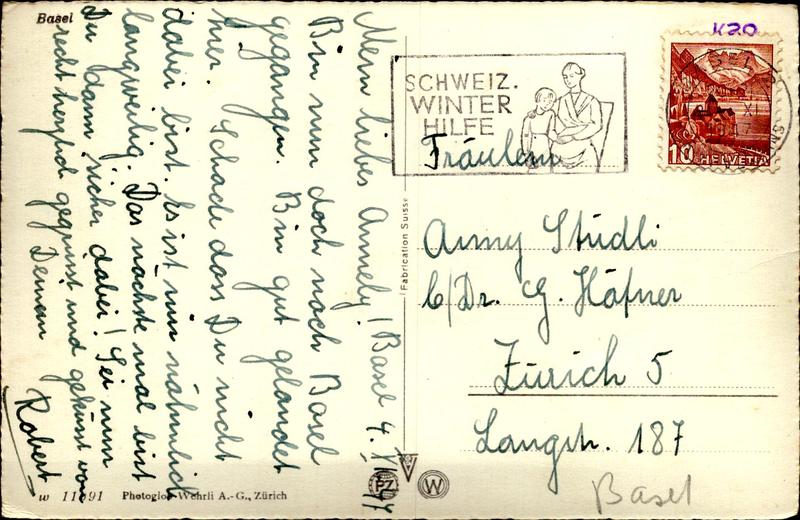 Basel
Mein liebes Annely! Basel 4. XI 47
Bin nun doch nach Basel
gegangen. Bin gut gelandet
hier. Schade dass Du nicht
dabei bist. Es ist mir nähmlich
langweilig. Das nächste mal bist
Du dann sicher dabei! Sei nun
recht herzlich gegrüsst und geküsst von
Deinem Robert
w 11 91 Photoglob-Wehrli A.-G., Zürich
Fabrication Suisse
PZ W
K20
SCHWEIZ.
WINTER
HILFE
10 HELVETIA
Fräulein
Anny Stüdli
c/Dr. G. Häfner
Zürich 5
Langstr. 187
Basel